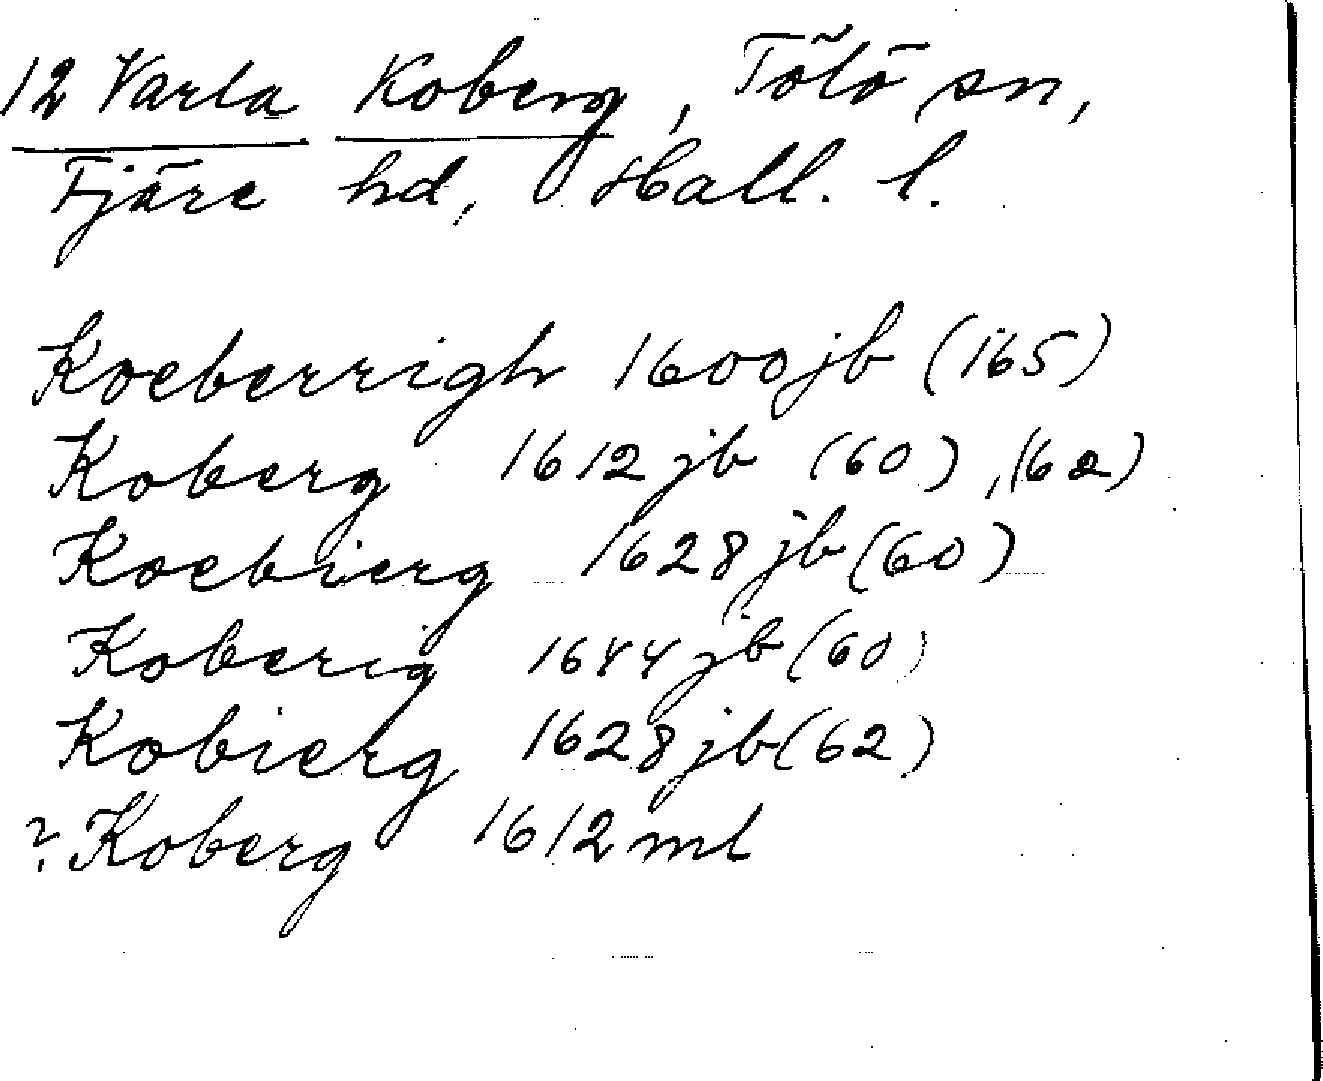 12 Varla Koberg, Tölö sn,
Fjäre hd, Hall. l.
Koeberrigh 1600 jb (165)
Koberg 1612 jb (60), (62)
Koebierg 1628 jb (60)
Koberig 1644 jb (60)
Kobierg 1628 jb (62)
? Koberg 1612 ml